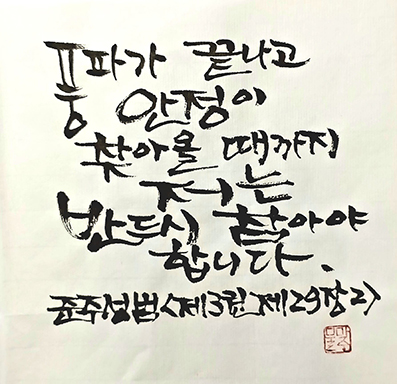 풍파가 끝나고
안정이
찾아올 때까지
저는
반드시 참아야
합니다.
준주성범<제3권 제29장2>